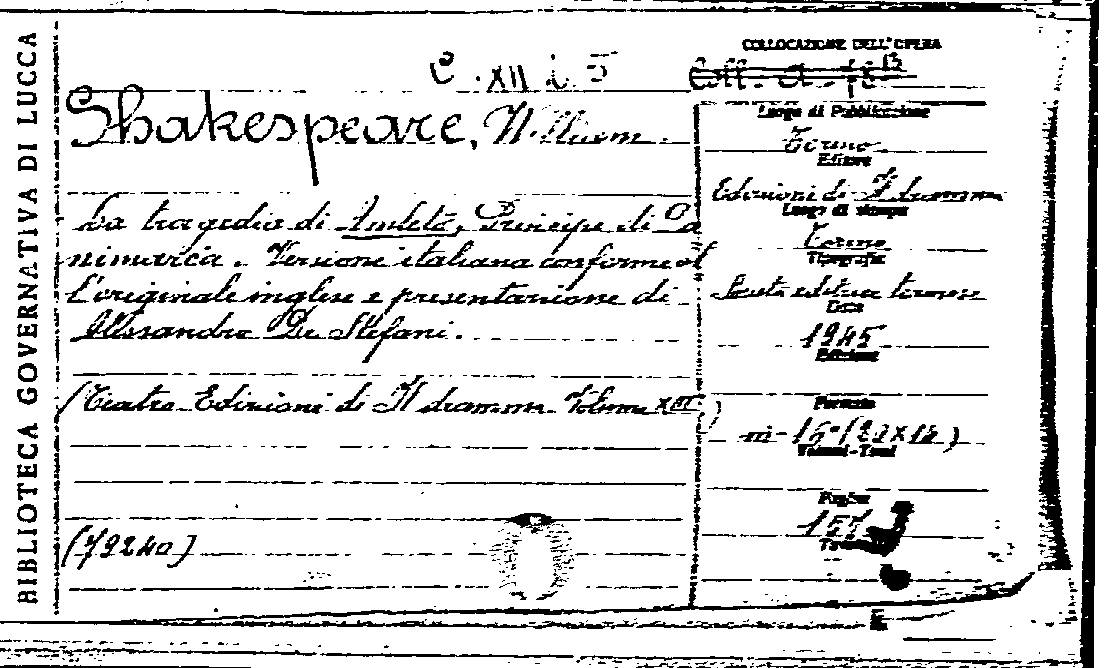 BIBLIOTECA GOVERNATIVA DI LUCCA
C. XII i. 5
Shakespeare, William.
La tragedia di Amleto, Principe di Da
nimarca. Versione italiana conforme al
l'originale inglese e presentazione di
Alessandro De Stefani.
(Teatro Edizioni de Il dramma Volume XIII)
(79240)
COLLOCAZIONE DELL'OPERA
Coll. a.
Luogo di Pubblicazione
Torino
Editore
Edizioni de Il dramma
Luogo di stampa
Torino
Tipografia
editrice torinese
Data
1945
Edizione
Formato
in-16°
Volumi-Tomi
Pagine
157
Tavole